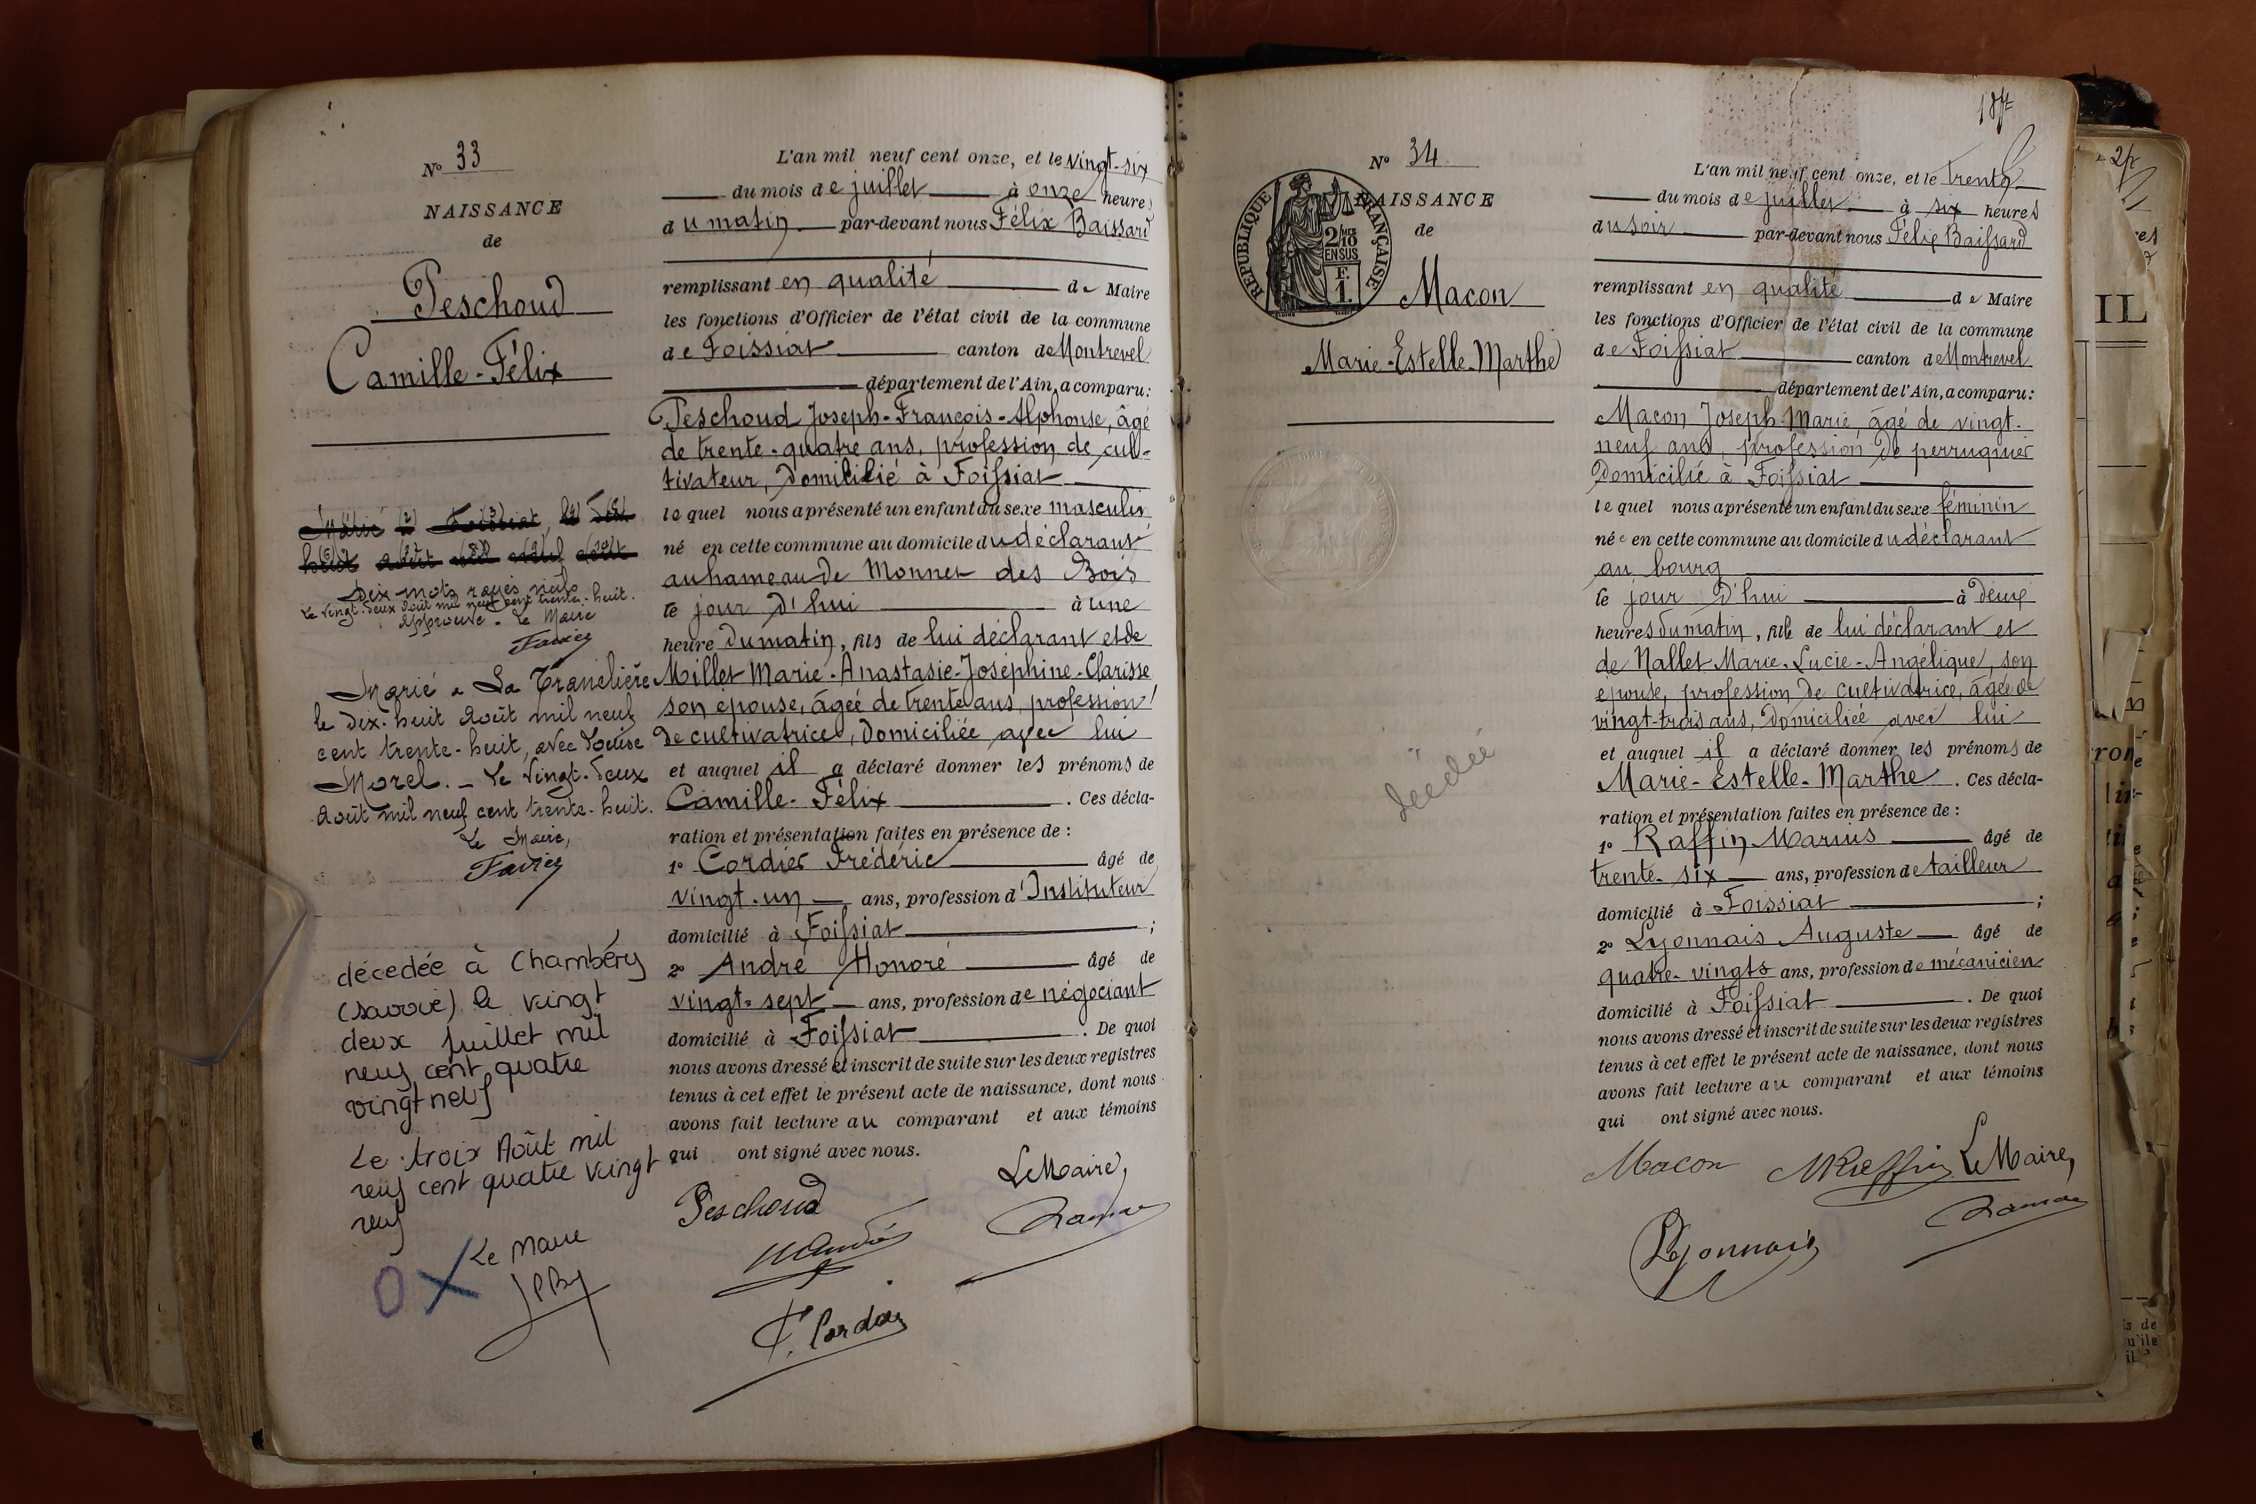 N° 33
NAISSANCE
de
Peschoud
Camille-Félix
Dix mots rayés nuls
Le vingt-deux Août mil neuf cent trente-huit.
Approuvé. Le Maire
Favier
Marié à La Tranclière
le dix-huit Août mil neuf
cent trente-huit, avec Louise
Morel. - Le vingt-deux
Août mil neuf cent trente-huit.
Le Maire,
Favier
décedée à Chambéry
(savoie) le vingt
deux juillet mil
neuf cent quatre
vingt neuf
Le trois Août mil
neuf cent quatre vingt
neuf
Le Maire
L'an mil neuf cent onze, et le vingt-six
du mois de juillet à onze heures
du matin par-devant nous Félix Baissard
remplissant en qualité de Maire
les fonctions d'Officier de l'état civil de la commune
de Foissiat canton de Montrevel
département de l'Ain, a comparu:
Peschoud Joseph-François-Alphonse, âgé
de trente-quatre ans, profession de cul-
tivateur, domicilié à Foissiat
lequel nous a présenté un enfant du sexe masculin
né en cette commune au domicile du déclarant
au hameau de Monnet des Bois
le jour d'hui à une
heure du matin, fils de lui déclarant et de
Millet Marie-Anastasie-Joséphine-Clarisse
son épouse, âgée de trente ans, profession
de cultivatrice, domiciliée avec lui
et auquel il a déclaré donner les prénoms de
Camille-Félix. Ces décla-
ration et présentation faites en présence de :
1° Cordier Frédéric âgé de
vingt-un ans, profession d'Instituteur
domicilié à Foissiat ;
2° André Honoré âgé de
vingt-sept ans, profession de négociant
domicilié à Foissiat. De quoi
nous avons dressé et inscrit de suite sur les deux registres
tenus à cet effet le présent acte de naissance, dont nous
avons fait lecture au comparant et aux témoins
qui ont signé avec nous.
Peschoud
Le Maire,
H André
F. Cordier
187
N° 34
NAISSANCE
de
RÉPUBLIQUE FRANÇAISE
2/10 EN SUS
F. 1.
Macon
Marie-Estelle-Marthe
décédée
L'an mil neuf cent onze, et le trente
du mois de juillet à six heures
du soir par-devant nous Félix Baissard
remplissant en qualité de Maire
les fonctions d'Officier de l'état civil de la commune
de Foissiat canton de Montrevel
département de l'Ain, a comparu:
Macon Joseph-Marie, âgé de vingt-
neuf ans, profession de perruquier
domicilié à Foissiat
lequel nous a présenté un enfant du sexe féminin
née en cette commune au domicile du déclarant
au bourg
le jour d'hui à deux
heures du matin, fille de lui déclarant et
de Nallet Marie-Lucie-Angélique, son
épouse, profession de cultivatrice, âgée de
vingt-trois ans, domiciliée avec lui
et auquel il a déclaré donner les prénoms de
Marie-Estelle-Marthe. Ces décla-
ration et présentation faites en présence de :
1° Raffin Marius âgé de
trente-six ans, profession de tailleur
domicilié à Foissiat ;
2° Lyonnais Auguste âgé de
quatre-vingts ans, profession de mécanicien
domicilié à Foissiat. De quoi
nous avons dressé et inscrit de suite sur les deux registres
tenus à cet effet le présent acte de naissance, dont nous
avons fait lecture au comparant et aux témoins
qui ont signé avec nous.
Macon M Raffin Le Maire,
Lyonnais
IL